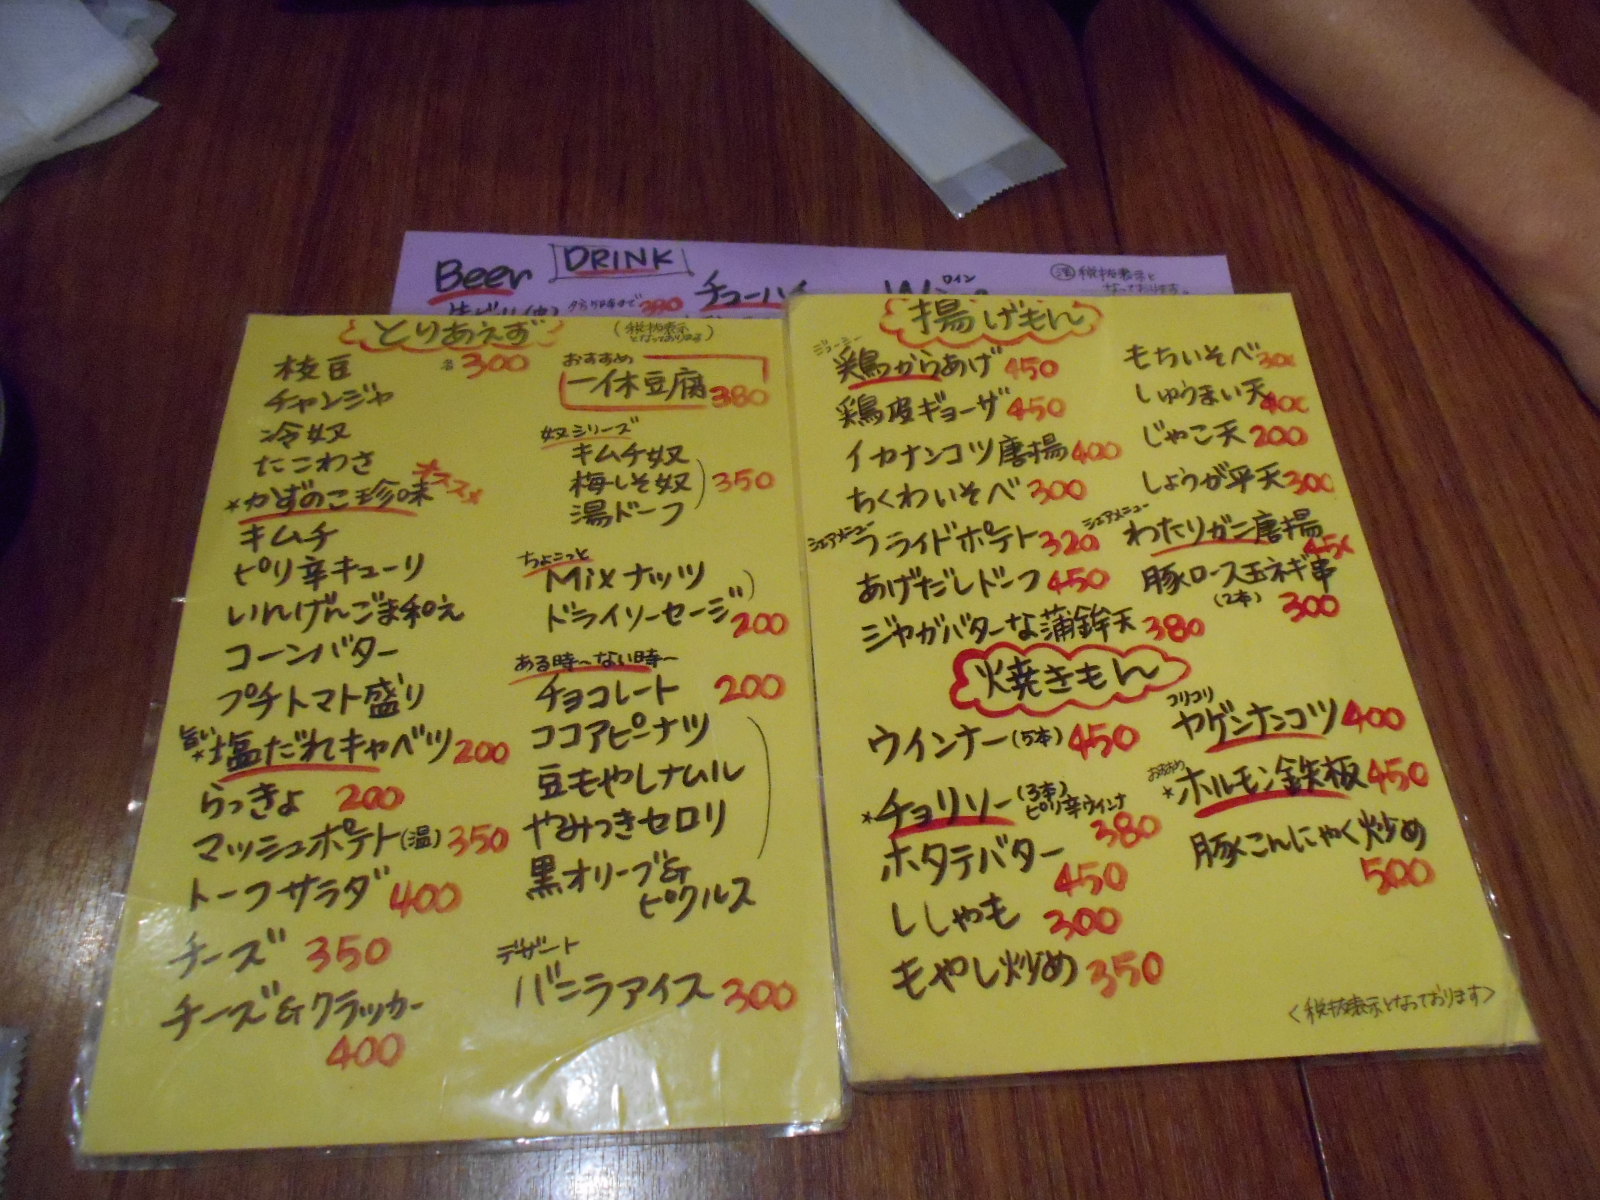 DRINK
Beer
から5時まで 380
チューハイ
ワイン
㊟税抜表示と
なっております。
とりあえず
(税抜表示
となっております)
枝豆 各300
チャンジャ
冷奴
たこわさ
*かずのこ珍味 オススメ
キムチ
ピリ辛キューリ
いんげんごま和え
コーンバター
プチトマト盛り
旨い*塩だれキャベツ 200
らっきょ 200
マッシュポテト(温) 350
トーフサラダ 400
チーズ 350
チーズ&クラッカー
400
おすすめ
一休豆腐 380
奴シリーズ
キムチ奴
梅しそ奴 350
湯ドーフ
ちょこっと
Mixナッツ
ドライソーセージ 200
ある時〜ない時〜
チョコレート 200
ココアピーナツ
豆もやしナムル
やみつきセロリ
黒オリーブ&
ピクルス
デザート
バニラアイス 300
揚げもん
ジューシー
鶏からあげ 450
鶏皮ギョーザ 450
イカナンコツ唐揚 400
ちくわいそべ 300
シェアメニュー フライドポテト 320
あげだしドーフ 450
ジャガバターな蒲鉾天 380
もちいそべ 300
しゅうまい天 400
じゃこ天 200
しょうが平天 300
シェアメニュー
わたりガニ唐揚 450
豚ロース玉ネギ串
(2本) 300
焼きもん
ウインナー(5本) 450
*チョリソー(3本)
ピリ辛ウインナ
380
ホタテバター
450
ししゃも 300
もやし炒め 350
コリコリ
ヤゲンナンコツ 400
おすすめ
*ホルモン鉄板 450
豚こんにゃく炒め
500
<税抜表示となっております>